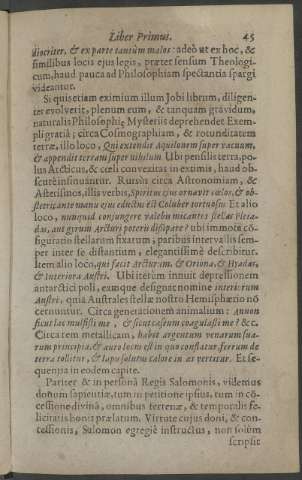 Liber Primus. 45
diocriter, & ex parte tantùm malos: adeò ut ex hoc, &
similibus locis ejus legis, præter sensum Theologi-
cum, haud pauca ad Philosophiam spectantia spargi
videantur.
Si quis etiam eximium illum Jobi librum, diligen-
ter evolverit, plenum eum, & tanquam gravidum,
naturalis Philosophiæ Mysteriis deprehendet. Exem-
pli gratiâ; circa Cosmographiam, & rotunditatem
terræ, illo loco, Qui extendit Aquilonem super vacuum,
& appendit terram super nihilum. Ubi pensilis terra, po-
lus Arcticus, & cœli convexitas in extimis, haud ob-
scurè insinuantur. Rursùs circa Astronomiam, &
Asterismos, illis verbis, Spiritus ejus ornavit cœlos, & ob-
stetricante manu ejus eductus est Coluber tortuosus. Et alio
loco, nunquid conjungere valebis micantes stellas Pleia-
das, aut gyrum Arcturi poteris dissipare? ubi immota cō-
figuratio stellarum fixarum, paribus intervallis sem-
per inter se distantium, elegantissimè describitur.
Item alio loco, qui facit Arcturum, & Oriona, & Hyadas,
& interiora Austri. Ubi iterùm innuit depressionem
antarctici poli, eamque designat nomine interiorum
Austri, quia Australes stellæ nostro Hemisphærio nō
cernuntur. Circa generationem animalium: Annon
sicut lac mulsisti me, & sicut caseum coagulasti me? &c.
Circa rem metallicam, habet argentum venarum sua-
rum principia, & auro locus est in quo conflatur, ferrum de
terra tollitur, & lapis solutus calore in æs vertitur. Et se-
quentia in eodem capite.
Pariter & in personâ Regis Salomonis, videmus
donum sapientiæ, tum in petitione ipsius, tum in cō-
cessione divinâ, omnibus terrenæ, & temporalis fe-
licitatis bonis prælatum. Virtute cujus doni, & con-
cessionis, Salomon egregiè instructus, non solùm
scripsit